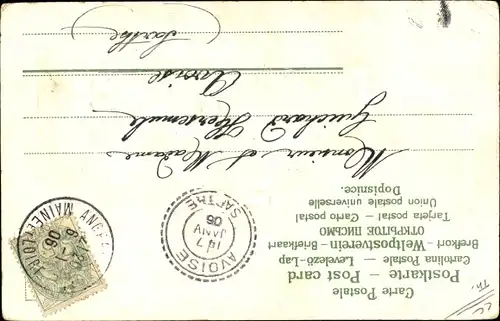 Carte Postale
Postkarte — Post card
Cartolina Postale — Levelező-Lap
Brefkort – Weltpostverein – Briefkaart
ОТКРЫТОЕ ПИСЬМО
Tarjeta postal — Carto postal
Union postale universelle
Dopisnice.
Monsieur et Madame
Guichard Hersemule
Avoise
(Sarthe)
AVOISE
14 7
JANV
06
SARTHE
ANGERS
06
MAINE-ET-LOIRE